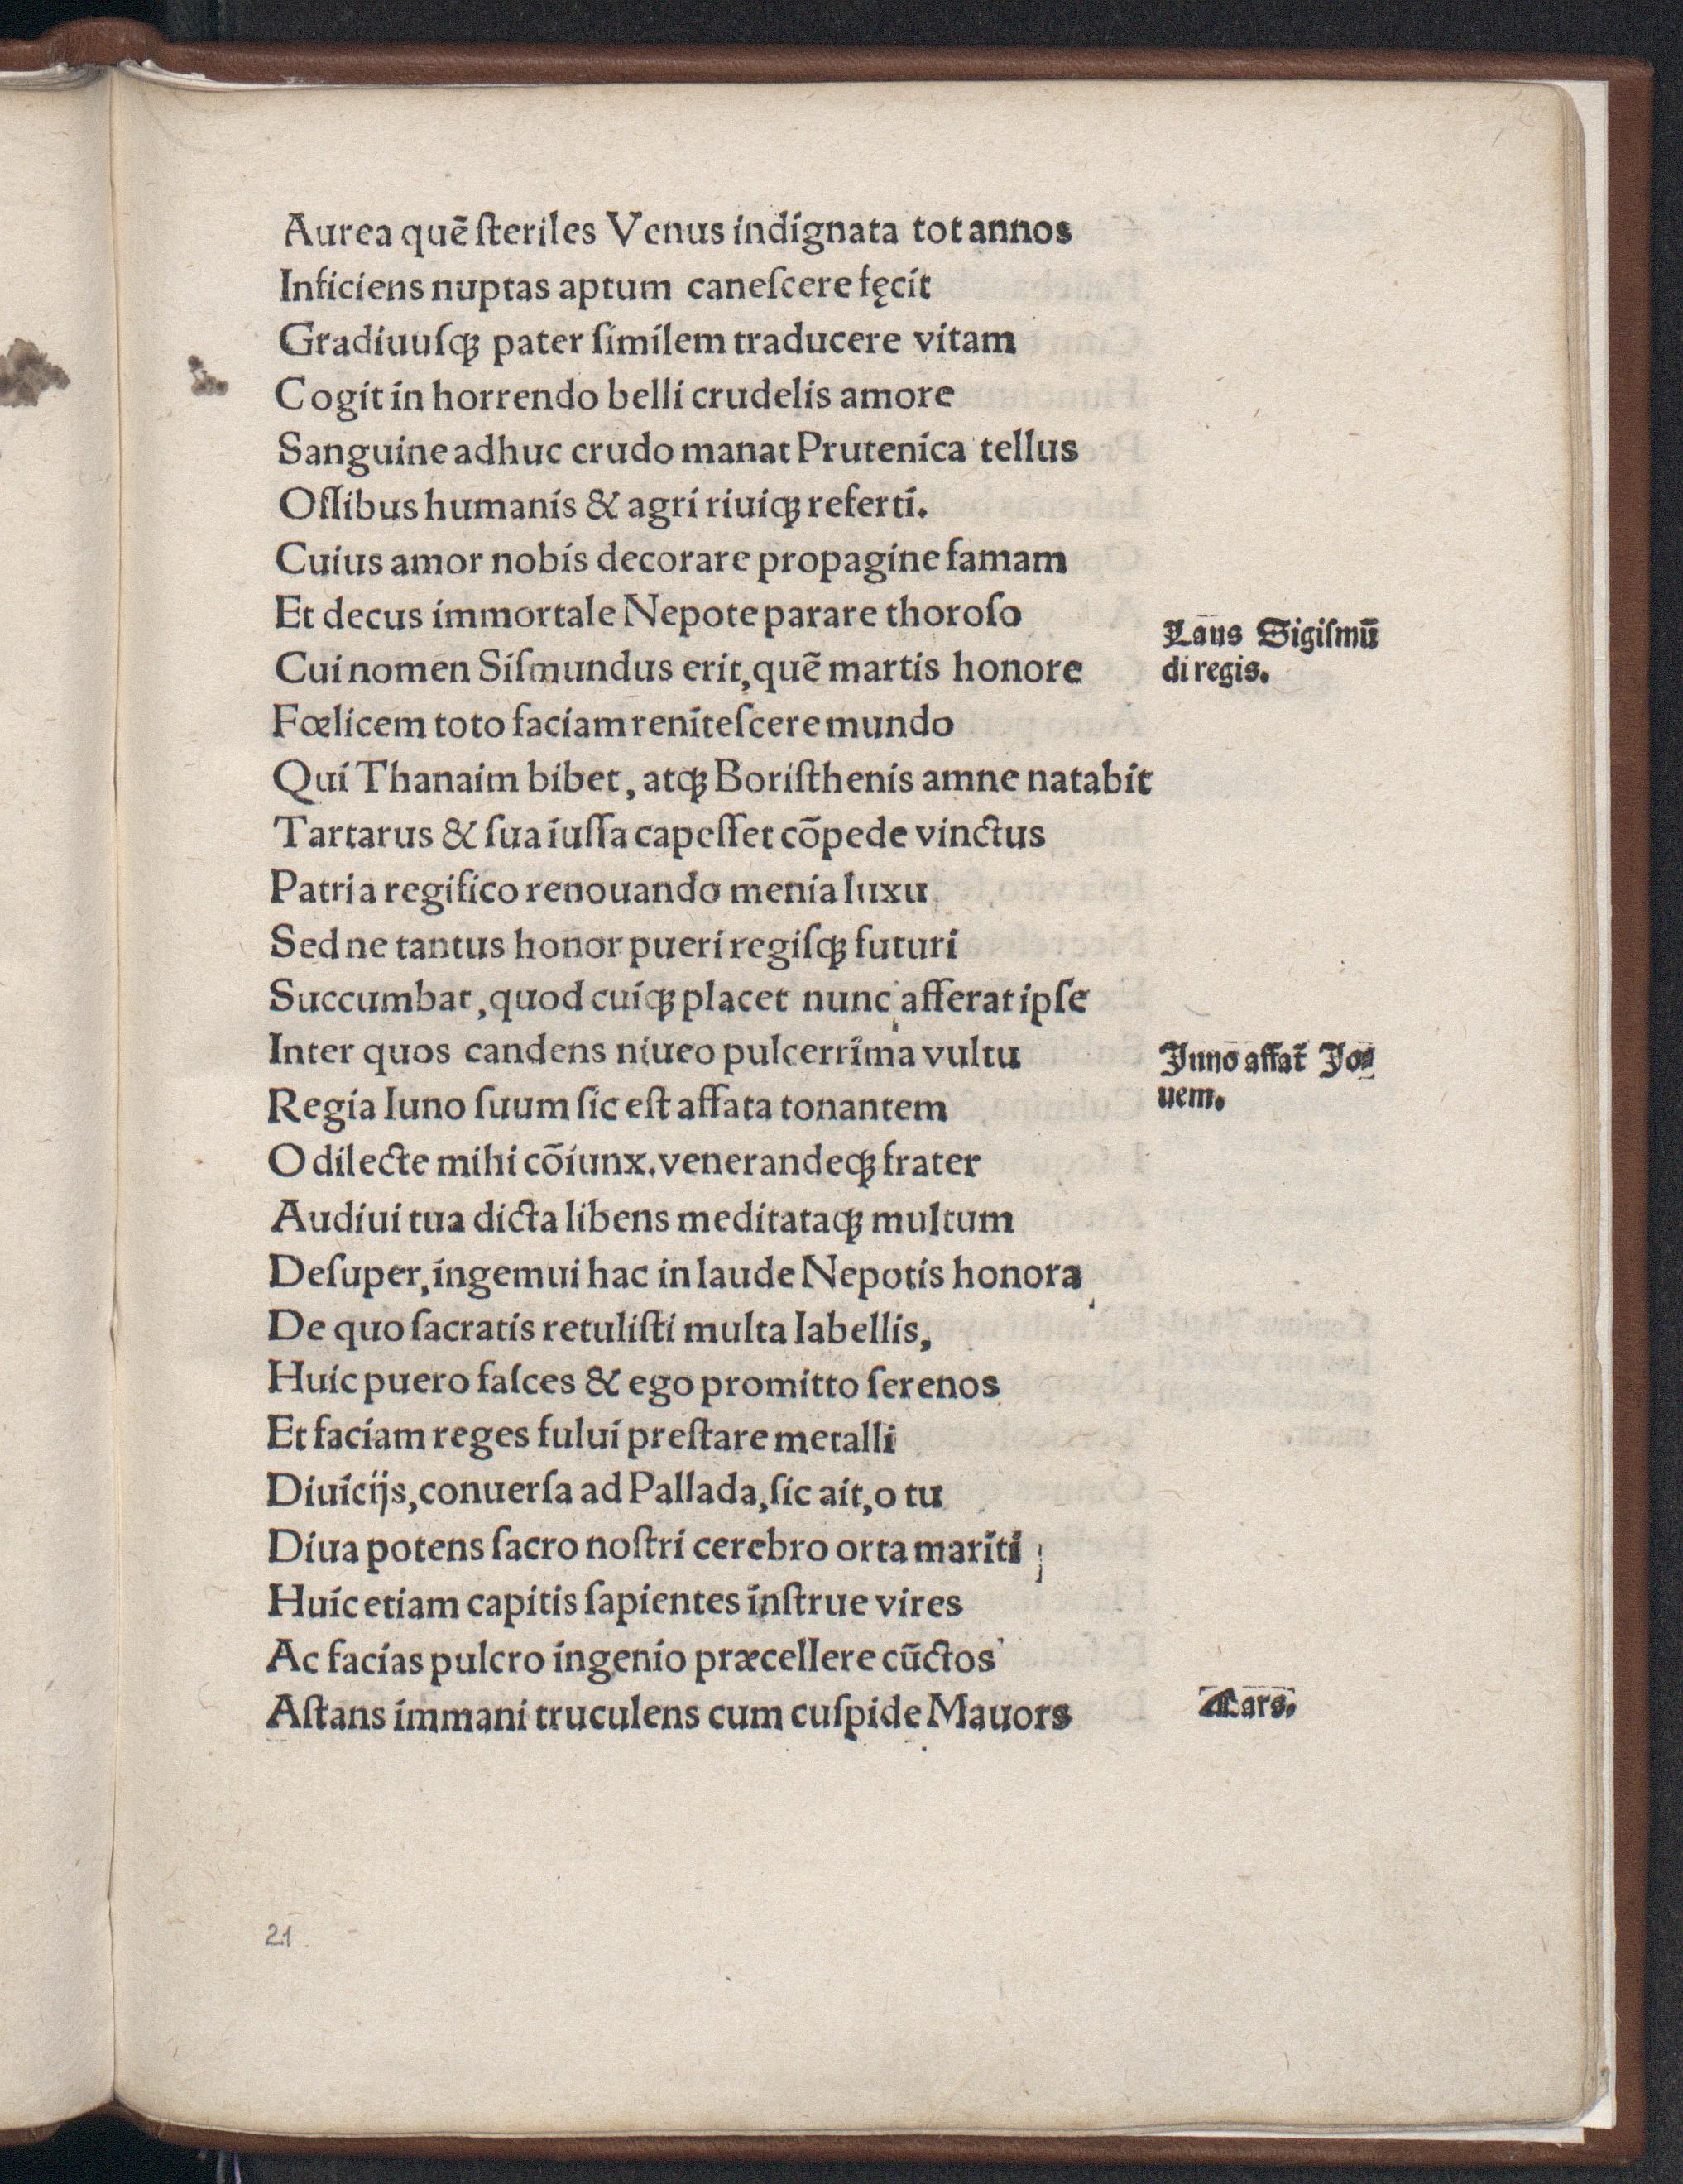 Aurea quē ſteriles Venus indignata tot annos
Inficiens nuptas aptum caneſcere fęcit
Gradiuuſqꝫ pater ſimilem traducere vitam
Cogit in horrendo belli crudelis amore
Sanguine adhuc crudo manat Prutenica tellus
Oſſibus humanis & agri riuiqꝫ referti.
Cuius amor nobis decorare propagine famam
Et decus immortale Nepote parare thoroſo
Laus Sigiſmū
Cui nomen Siſmundus erit, quē martis honore
di regis.
Fœlicem toto faciam reniteſcere mundo
Qui Thanaim bibet, atqꝫ Boriſthenis amne natabit
Tartarus & ſua iuſſa capeſſet cōpede vinctus
Patria regifico renouando menia luxu
Sed ne tantus honor pueri regiſqꝫ futuri
Succumbat, quod cuiqꝫ placet nunc afferat ipſe
Inter quos candens niueo pulcerrima vultu
Juno affat̄ Jo⸗
Regia Iuno ſuum ſic eſt affata tonantem
uem.
O dilecte mihi cōiunx. venerandeqꝫ frater
Audiui tua dicta libens meditataqꝫ multum
Deſuper, ingemui hac in laude Nepotis honora
De quo ſacratis retuliſti multa labellis,
Huic puero faſces & ego promitto ſerenos
Et faciam reges fului preſtare metalli
Diuicijs, conuerſa ad Pallada, ſic ait, o tu
Diua potens ſacro noſtri cerebro orta mariti
Huic etiam capitis ſapientes inſtrue vires
Ac facias pulcro ingenio præcellere cūctos
Aſtans immani truculens cum cuſpide Mauors
Mars.
21